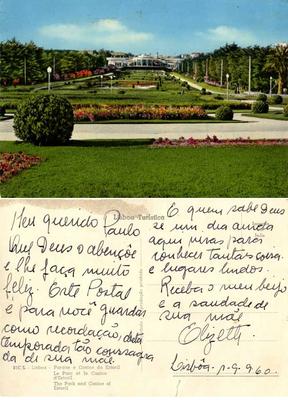 Lisboa Turística
Meu querido Paulo
Que Deus o abençõe
e lhe faça muito
feliz. Este Postal
e para você guardar
como recordação, desta
temporada, tão
de sua mãe.
E quem sabe Deus
se um dia ainda
aqui viras para
conhecer tantas coisas
e lugares lindos.
Receba o meu beijo
e a saudade de
sua mãe
Olizeth
Lisbôa - 1-9-960.
- Lisboa - Parque e Casino do Estoril
Le Parc et le Casino
d'Estoril
The Park and Casino of
Estoril